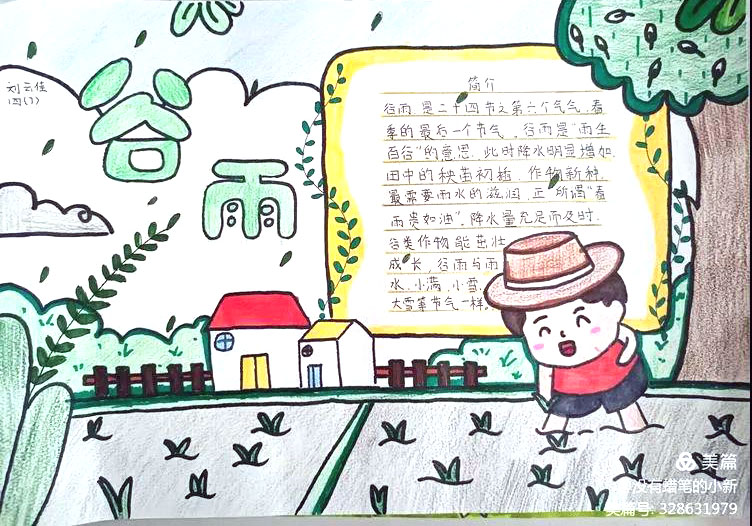 刘云佳
四(7)
谷
雨
简介
谷雨是二十四节之第六个气气,春
季的最后一个节气。谷雨是"雨生
百谷"的意思,此时降水明显增加,
田中的秧苗初插、作物新种,
最需要雨水的滋润,正所谓"春
雨贵如油"。降水量充足而及时,
谷类作物能茁壮
成长,谷雨与雨
水、小满、小雪、
大雪等节气一样。
美篇
没有蜡笔的小新
美篇号: 328631979